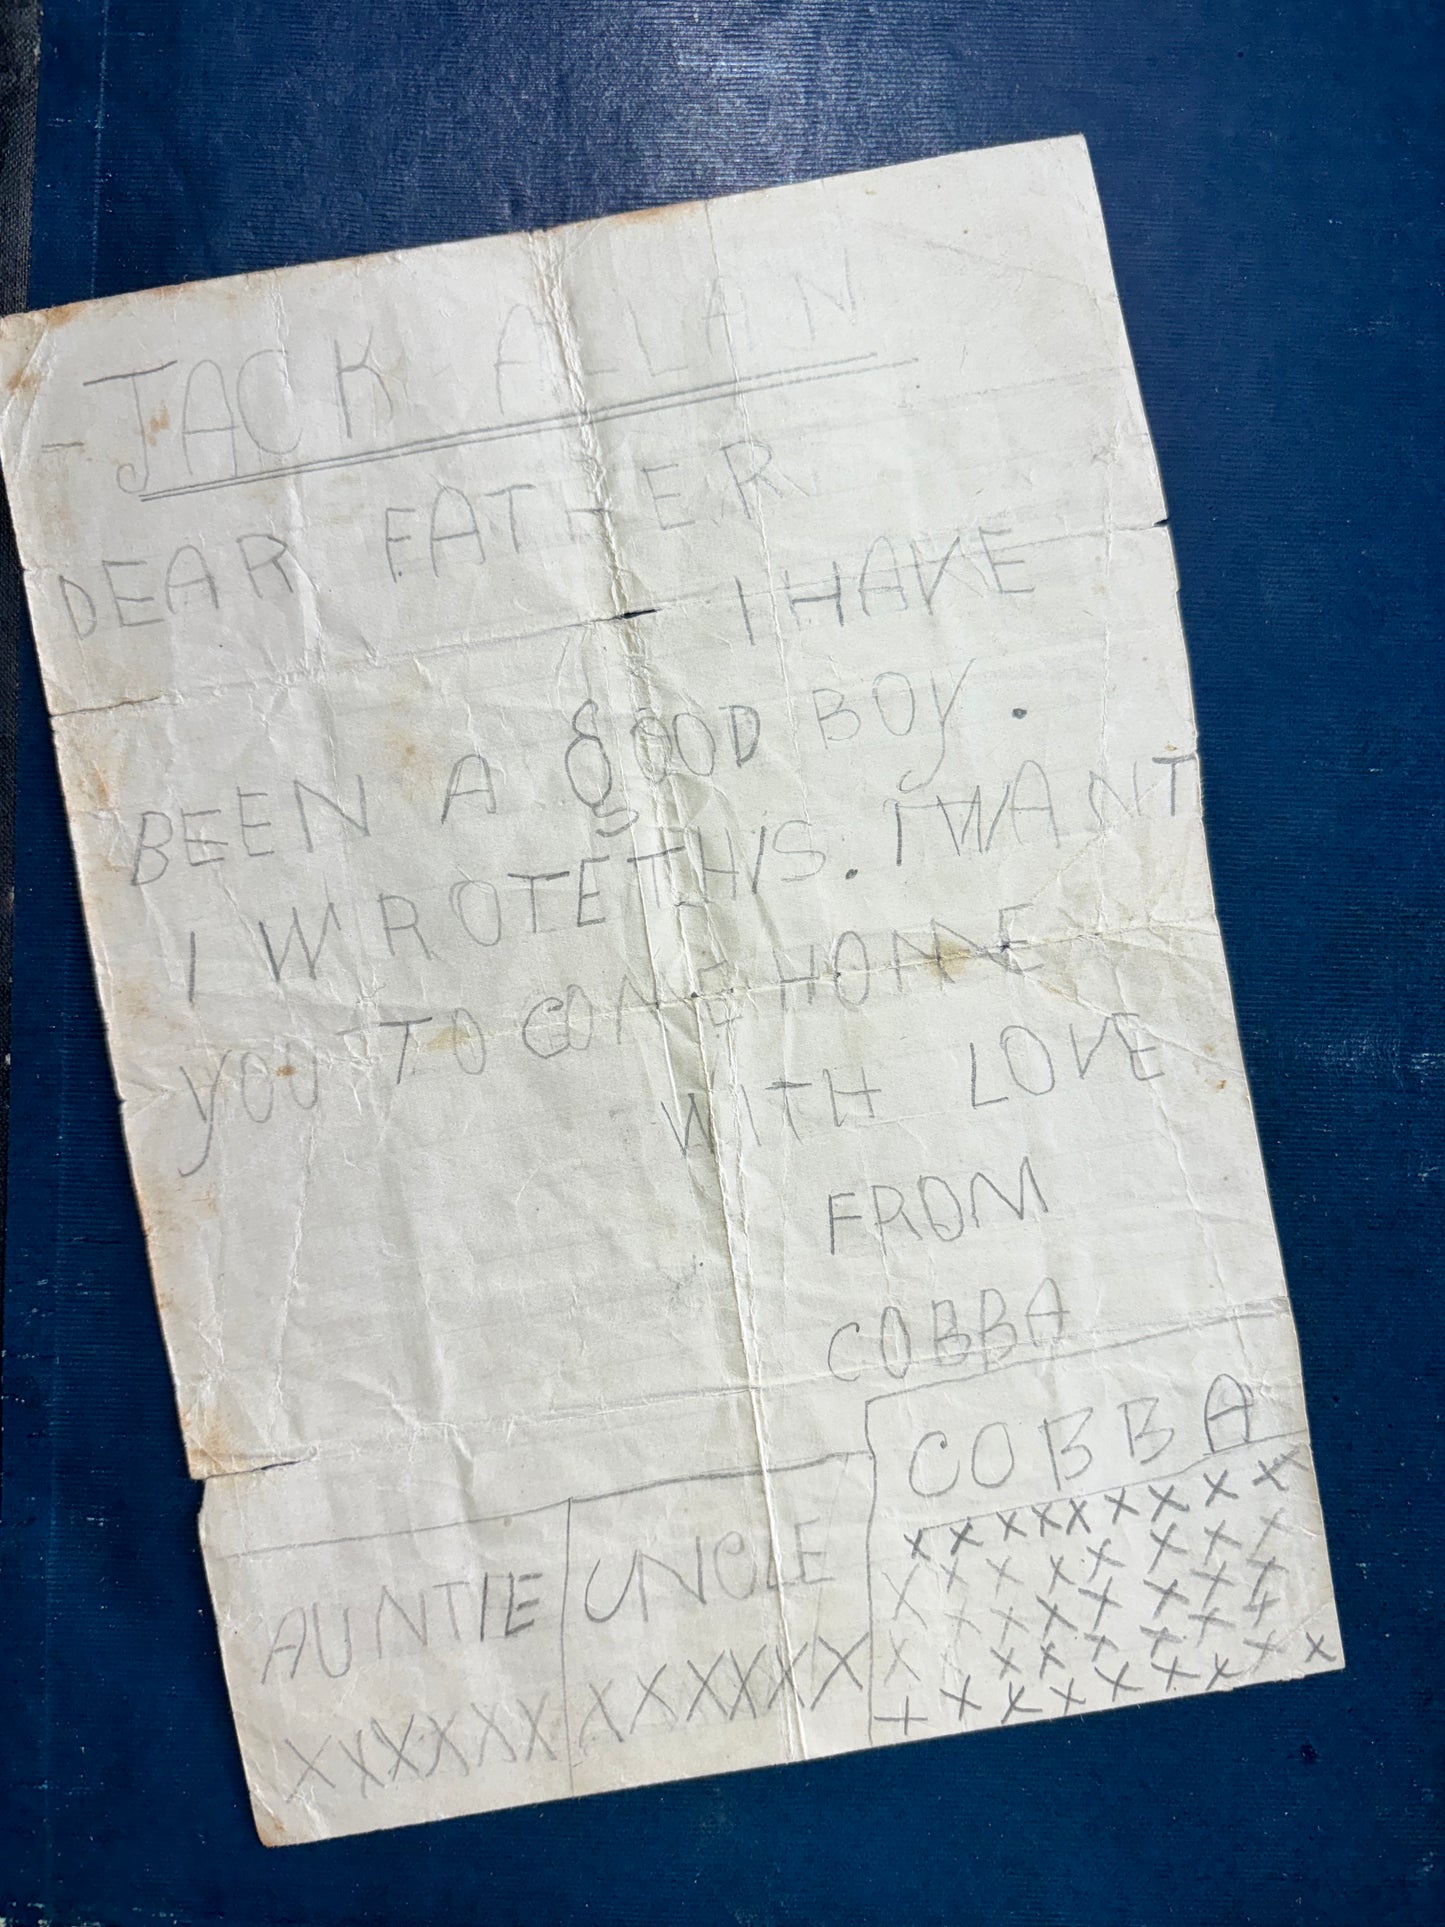 JACK ALLAN
DEAR FATHER
I HAVE
BEEN A gOOD BOY.
I WROTE THIS. I WANT
YOU TO COME HOME
WITH LOVE
FROM
COBBA
COBBA
XXXXXXXXX
XXXXXXXX
XXXXXXXX
XXXXXXXXX
XXXXXXX
AUNTIE UNCLE
XXXXXXX XXXXXXX